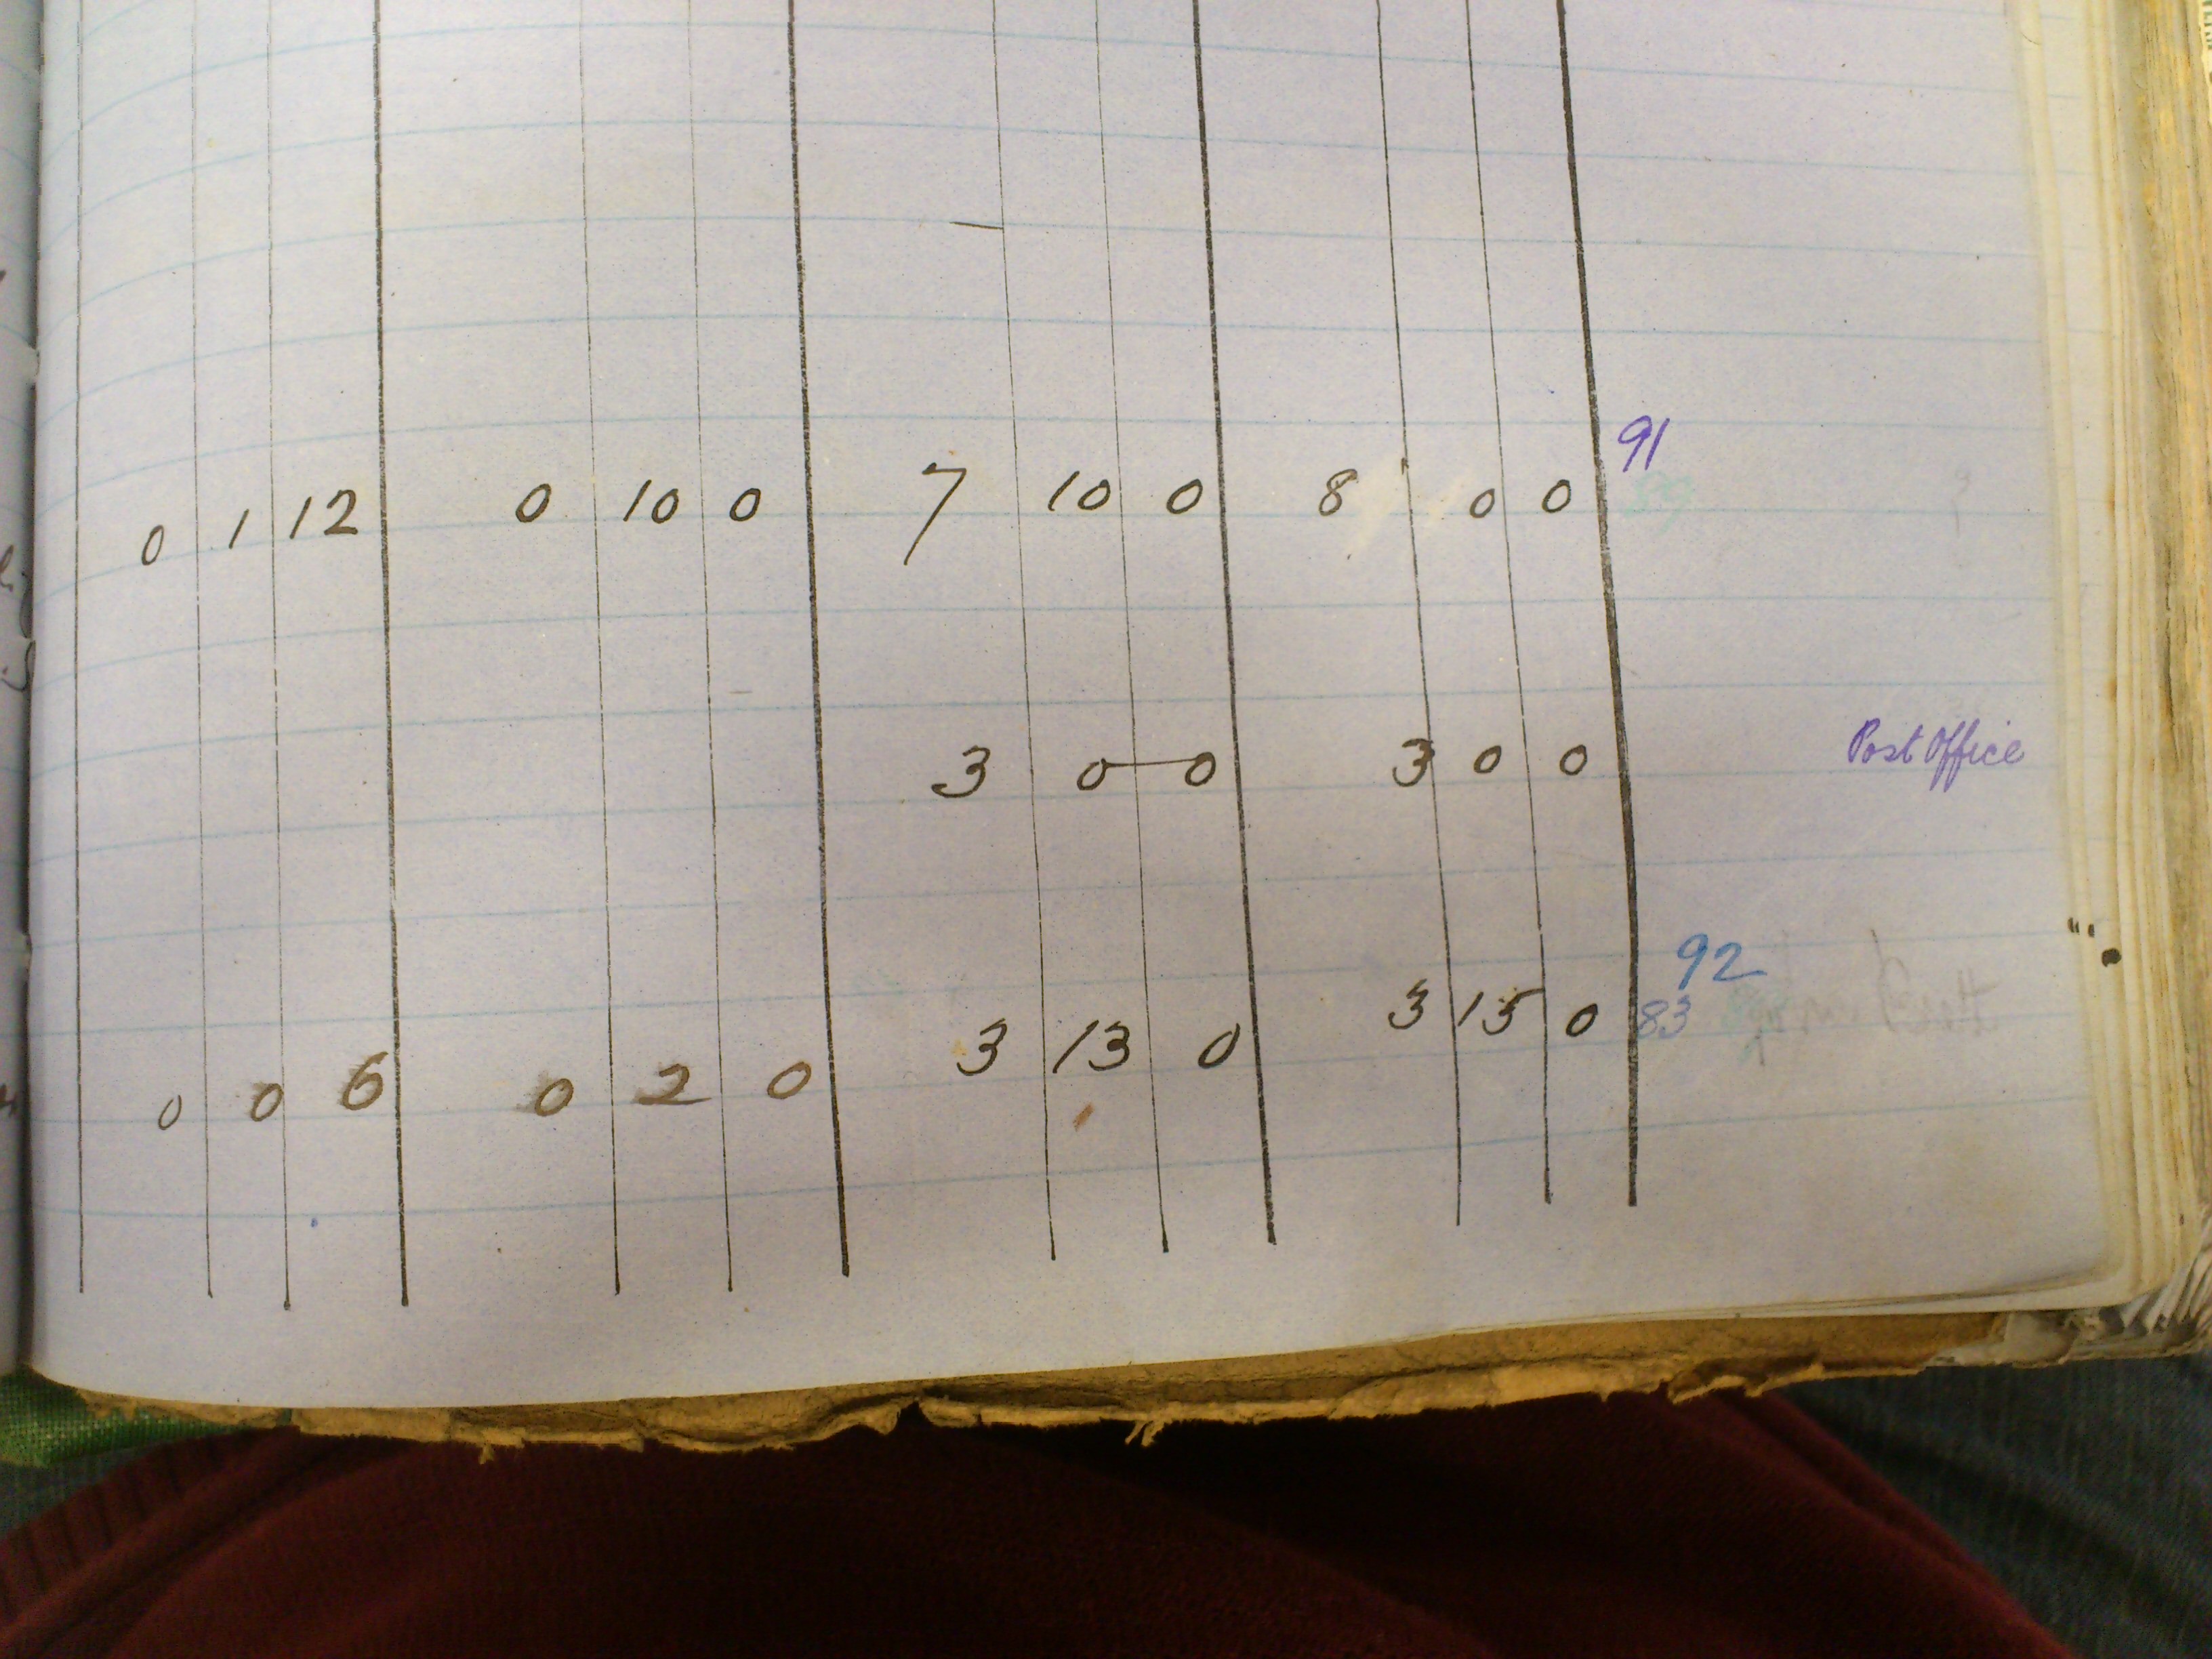 91
0 1 12 0 10 0 7 10 0 8 0 0 89
3 0 0 3 0 0 Post Office
92
0 0 6 0 2 0 3 13 0 3 15 0 83